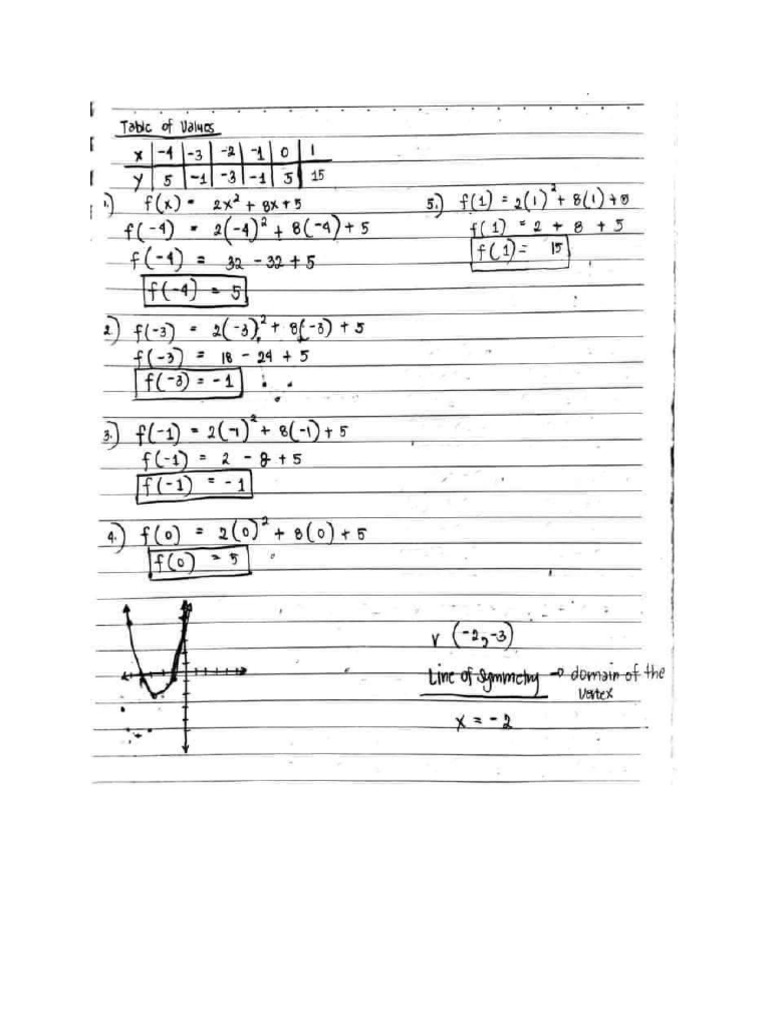 Table of Values
x | -4 | -3 | -2 | -1 | 0 | 1
y | 5 | -1 | -3 | -1 | 5 | 15
1.) f(x) = 2x² + 8x + 5
f(-4) = 2(-4)² + 8(-4) + 5
f(-4) = 32 - 32 + 5
f(-4) = 5
2.) f(-3) = 2(-3)² + 8(-3) + 5
f(-3) = 18 - 24 + 5
f(-3) = -1
3.) f(-1) = 2(-1)² + 8(-1) + 5
f(-1) = 2 - 8 + 5
f(-1) = -1
4.) f(0) = 2(0)² + 8(0) + 5
f(0) = 5
5.) f(1) = 2(1)² + 8(1) + 5
f(1) = 2 + 8 + 5
f(1) = 15
V (-2, -3)
Line of Symmetry → domain of the
Vertex
x = -2